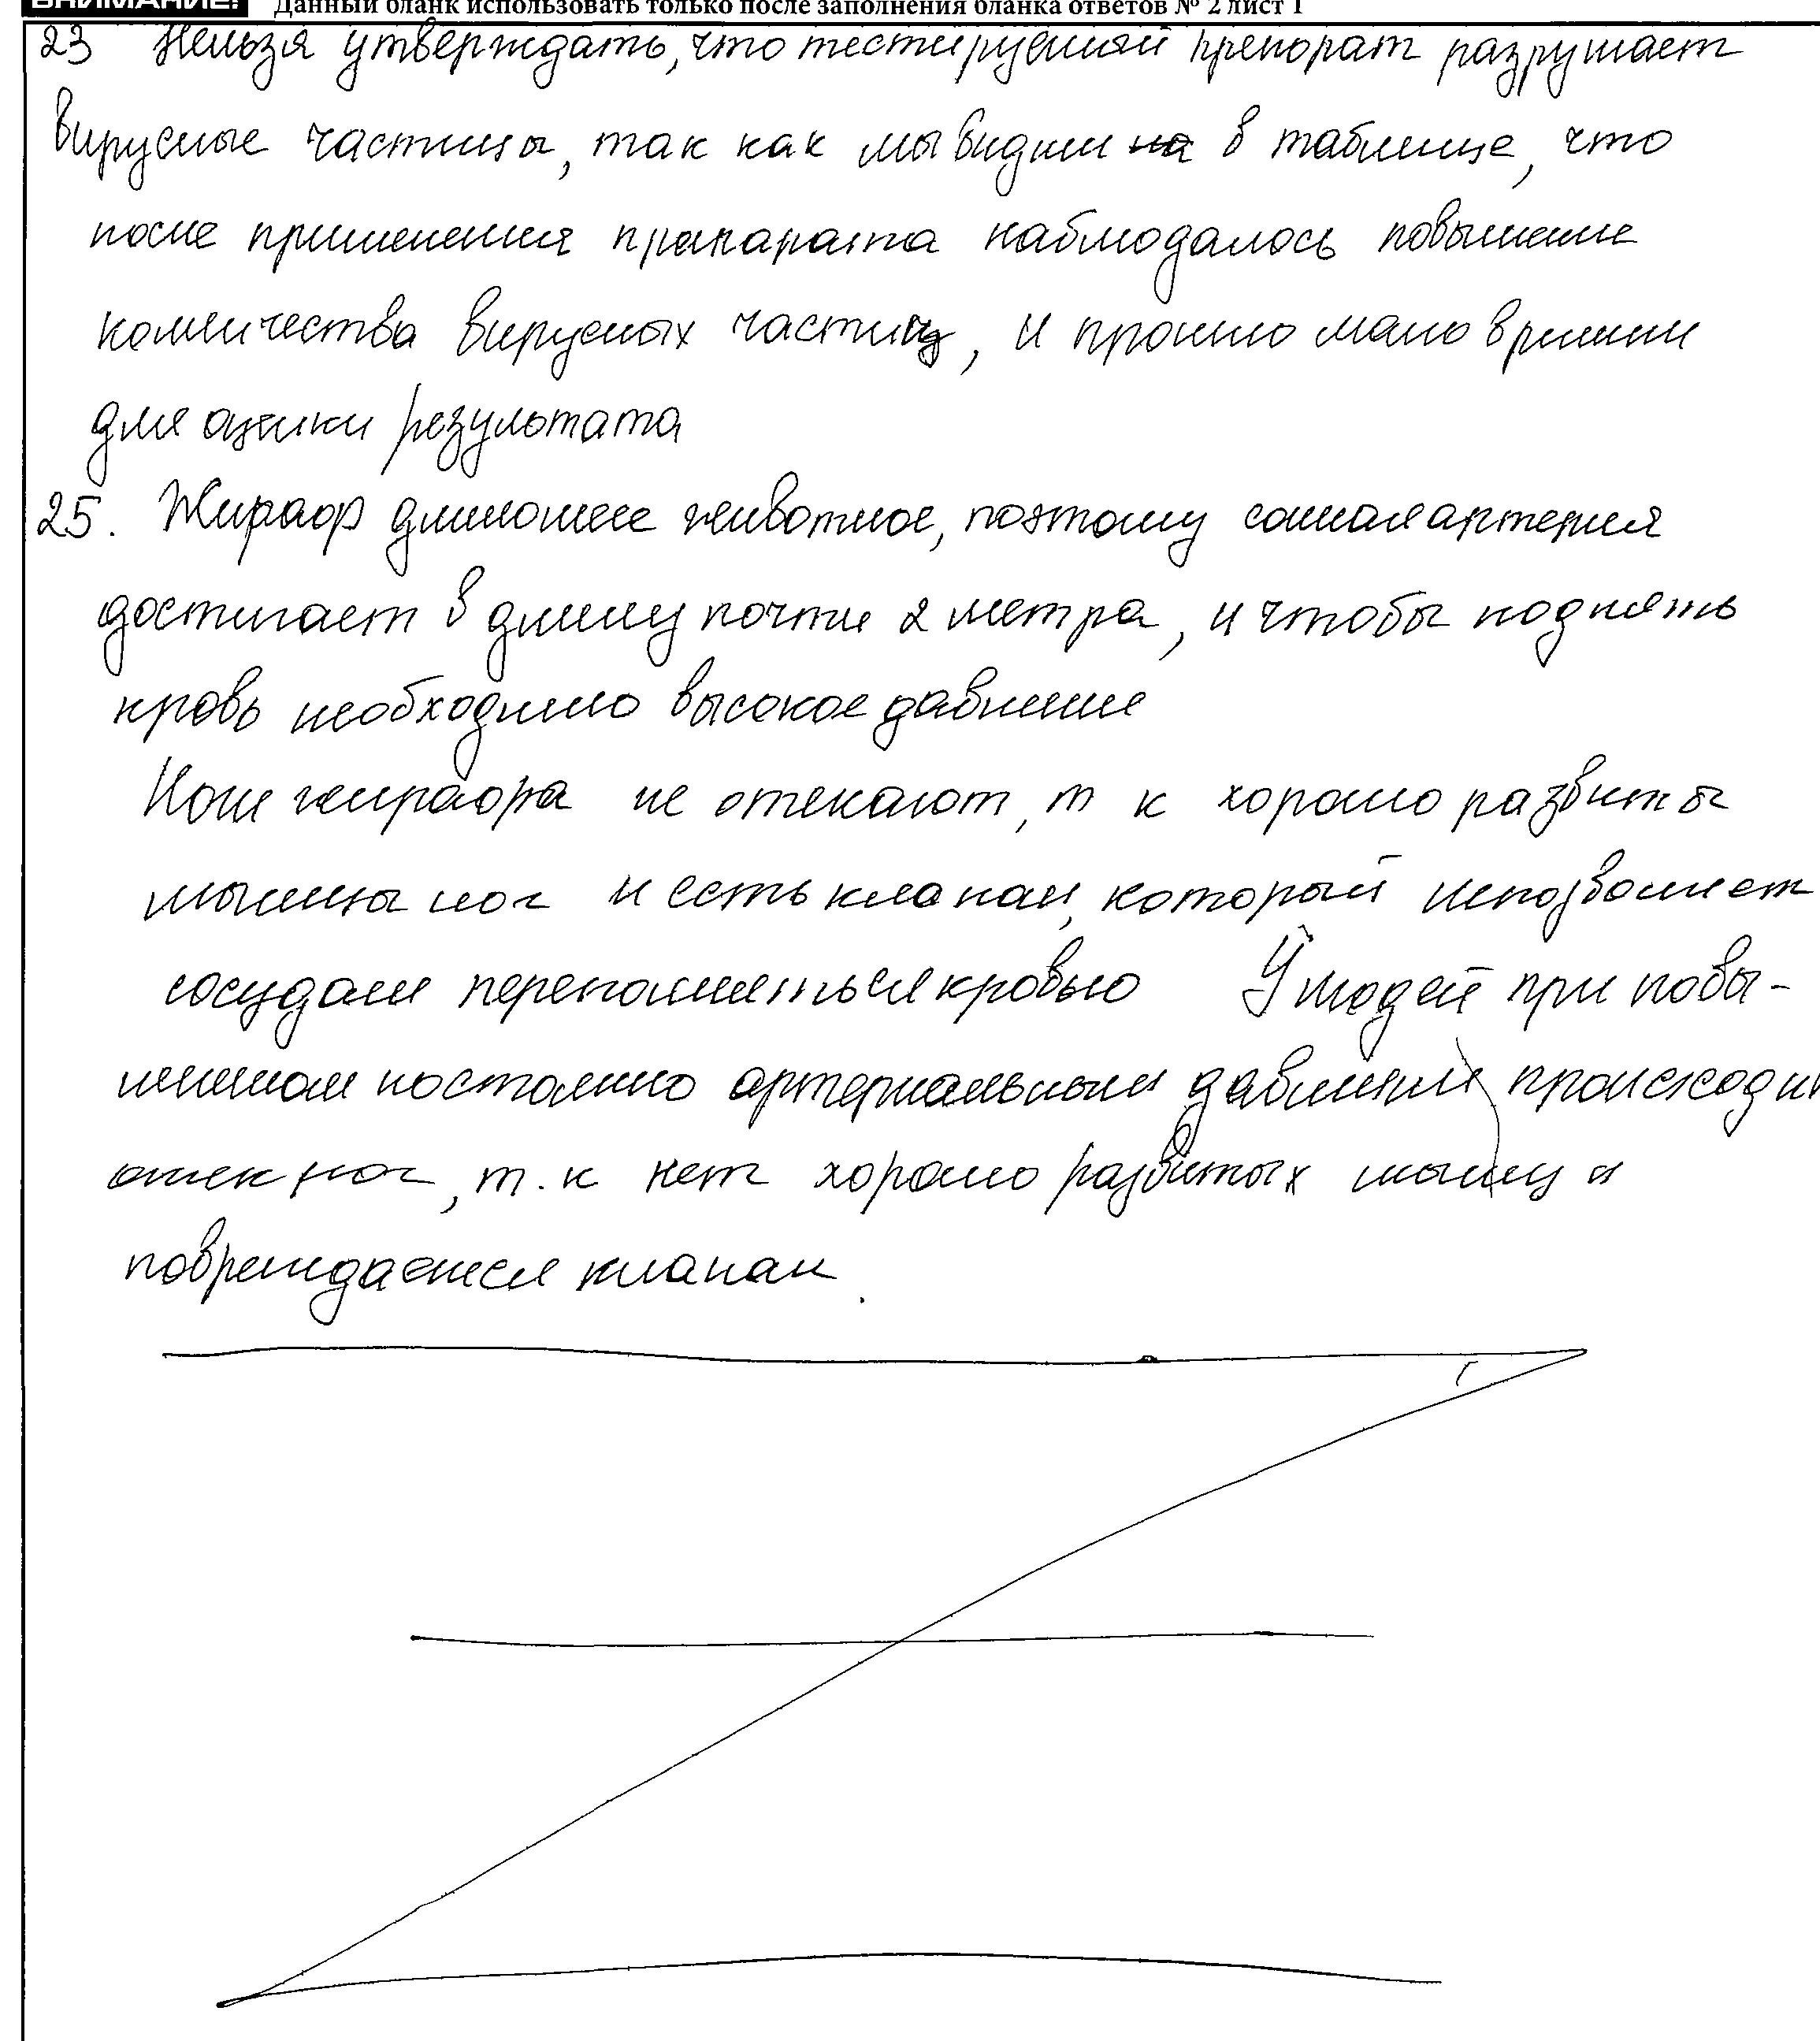 ВНИМАНИЕ! Данный бланк использовать только после заполнения бланка ответов № 2 лист 1
23 Нельзя утверждать, что тестируемый препорат разрушает
вирусные частицы, так как мы видим на в таблице, что
после применения препарата наблюдалось повышение
колличества вирусных частиц, и прошло мало времени
для оценки результата
25. Жираф длиношее животное, поэтому сонная артерия
достигает в длину почти 2 метра, и чтобы поднять
кровь необходимо высокое давление
Ноги жирафа не отекают, т к хорошо развиты
мышцы ног и есть клапан, который непозволяет
сосудам переполняться кровью У людей при повы-
шенном постоянно артериальным давлении происходит
отек ног, т.к нет хорошо развитых мышц и
повреждается клапан.